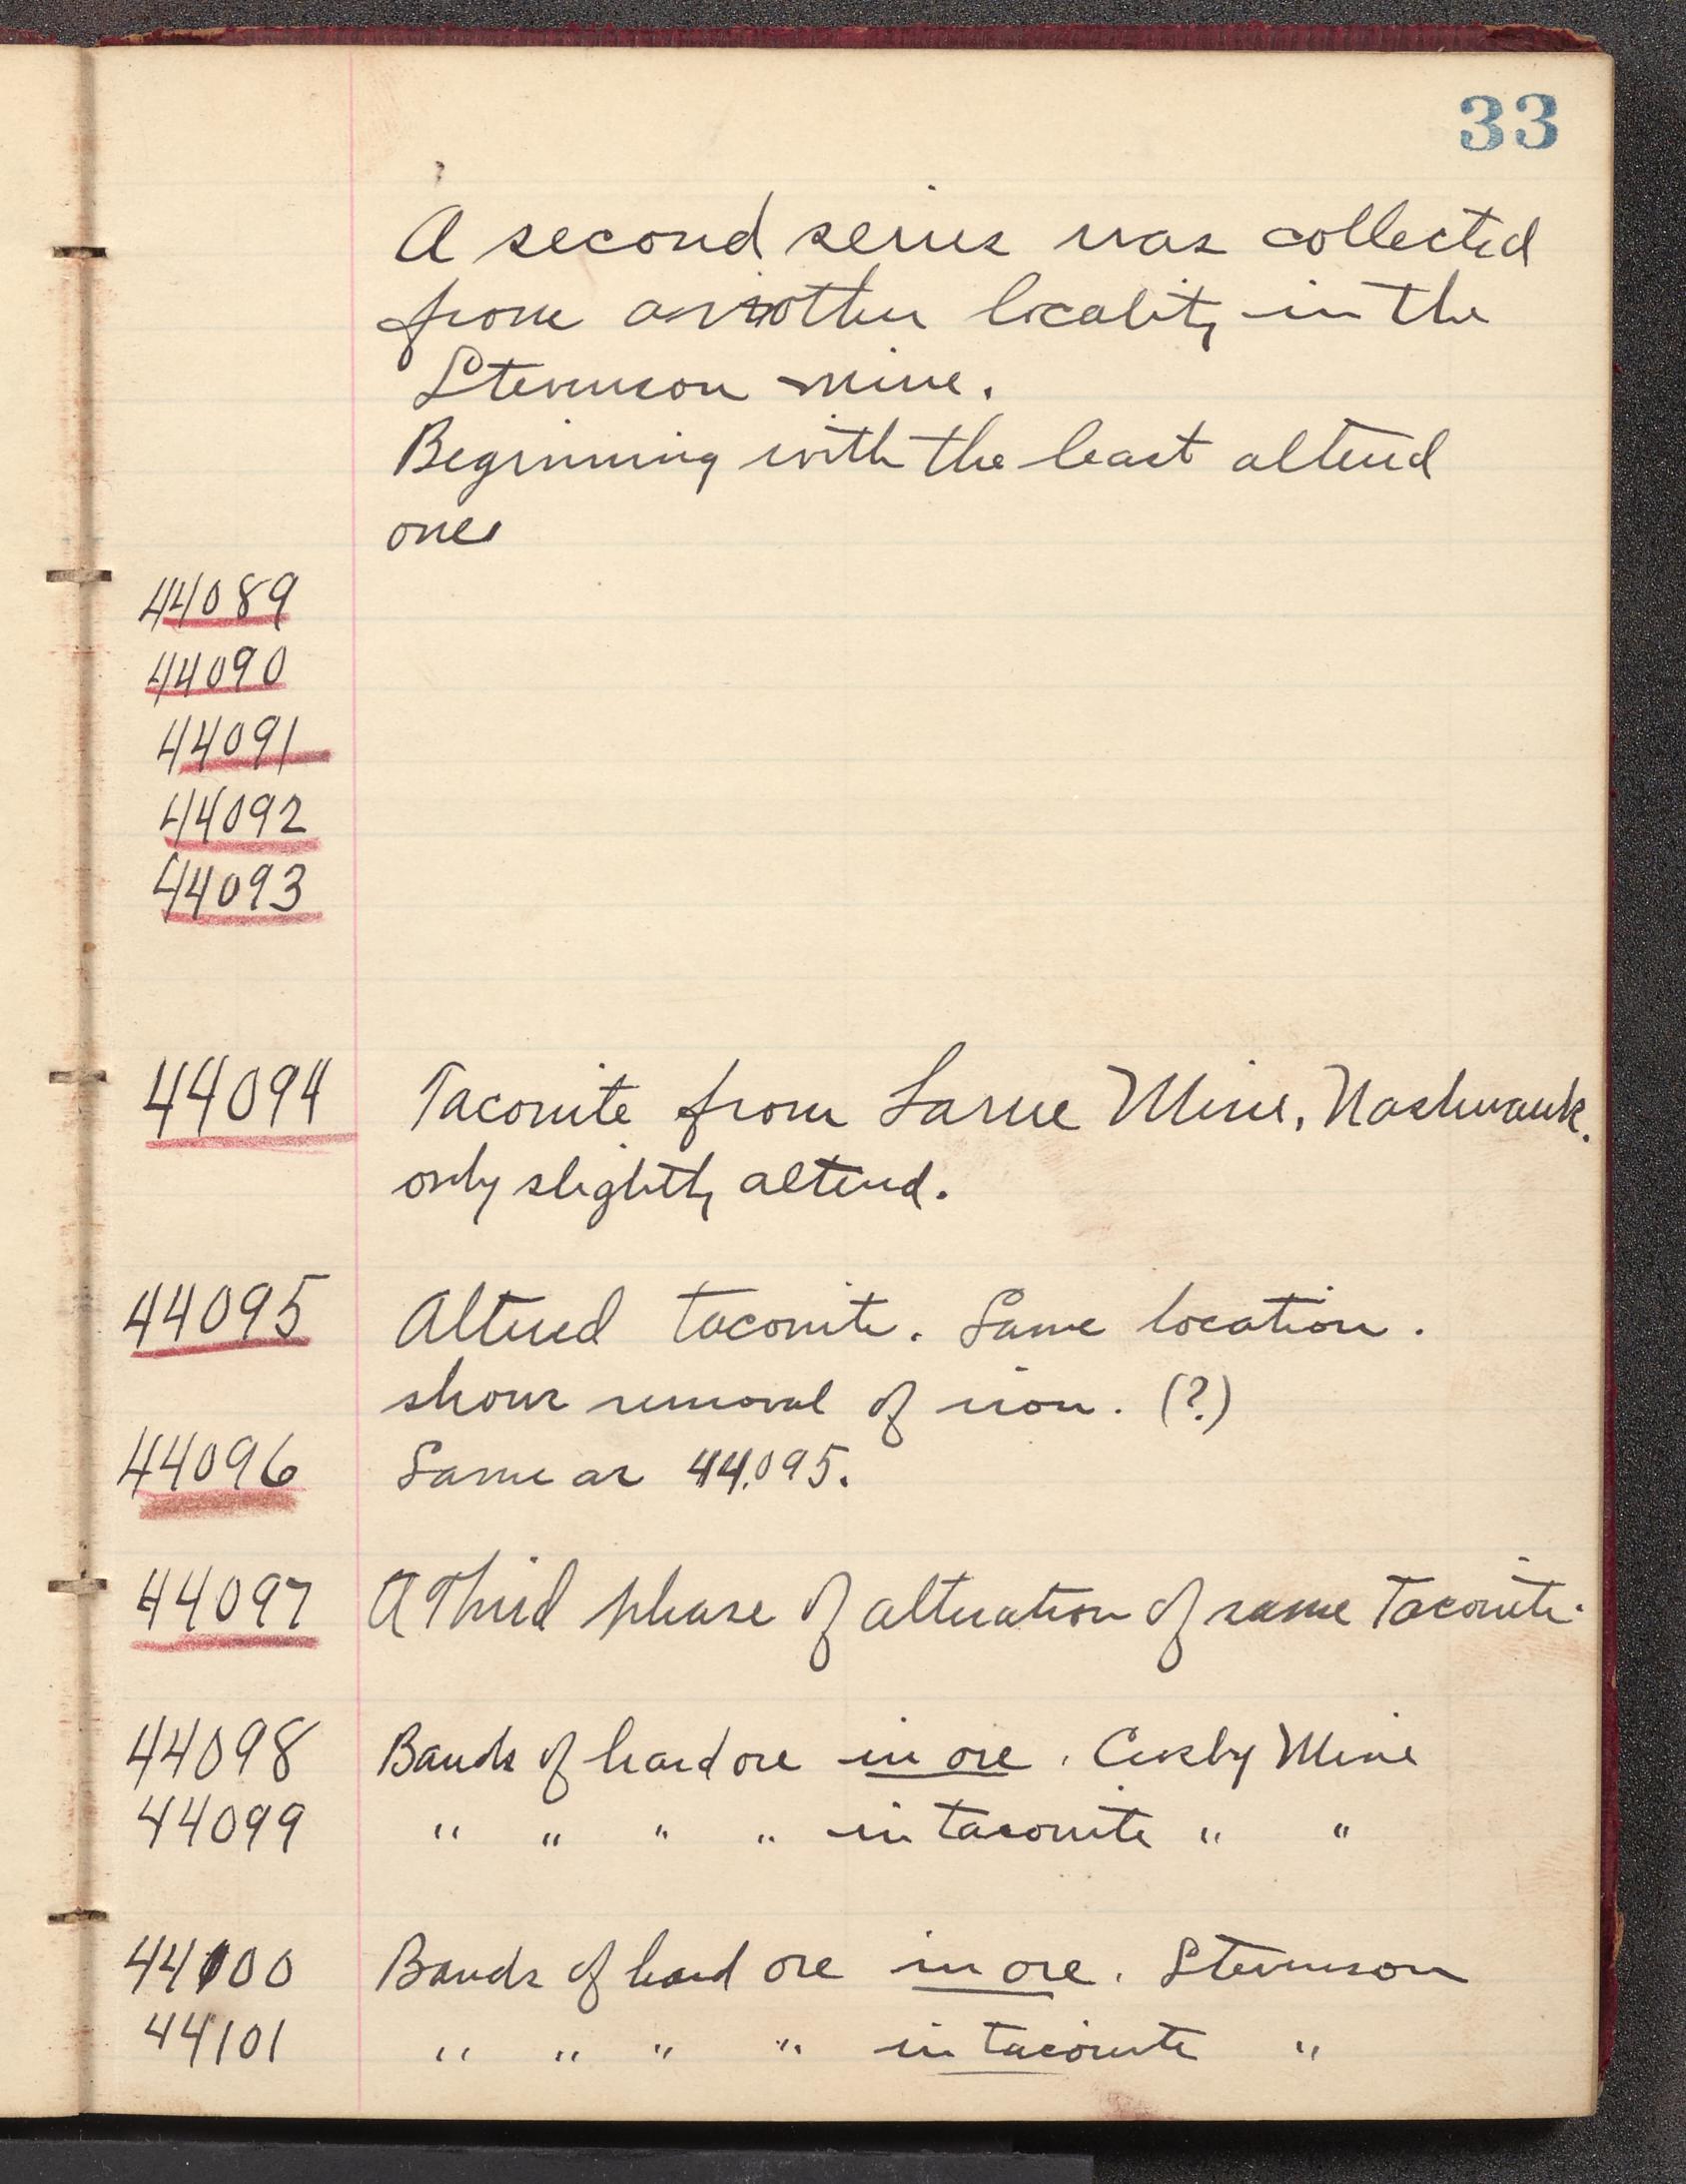 33
A second series was collected
from another locality in the
Stevenson mine.
Beginning with the least altered
ones
44089
44090
44091
44092
44093
44094 Taconite from Larue Mine, Nashwauk.
only slightly altered.
44095 Altered taconite. Same location.
shows removal of iron. (?)
44096 Same as 44095.
44097 A Third phase of alteration of same Taconite.
44098 Bands of hard ore in ore. Croxby Mine
44099 " " " " in taconite " "
44100 Bands of hard ore in ore. Stevenson
44101 " " " " in taconite "